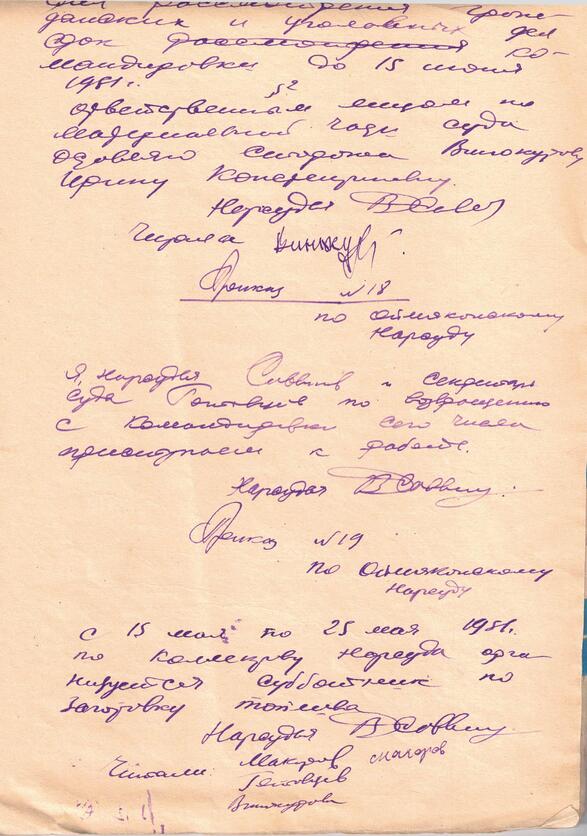 для рассмотрения граж-
данских и уголовных дел
срок рассмотрения ко-
мандировки до 15 июня
1981г.
§2
ответственным лицом по
материальной части суда
Винокурову
Ирину
Нарсудья В Саввин
Читала Винокур
Приказ №18
по Оймяконскому
Нарсуду
Я, нарсудья Саввин и секретарь
суда Готовцев по возвращению
с командировки сего числа
приступаем к работе.
Нарсудья В Саввин
Приказ №19
по Оймяконскому
Нарсуду
с 15 мая по 25 мая 1981г.
по коллективу Нарсуда орга-
низуется субботник по
заготовку топлива
Нарсудья В Саввин
Читали: Макаров Макаров
Готовцев
Винокурова